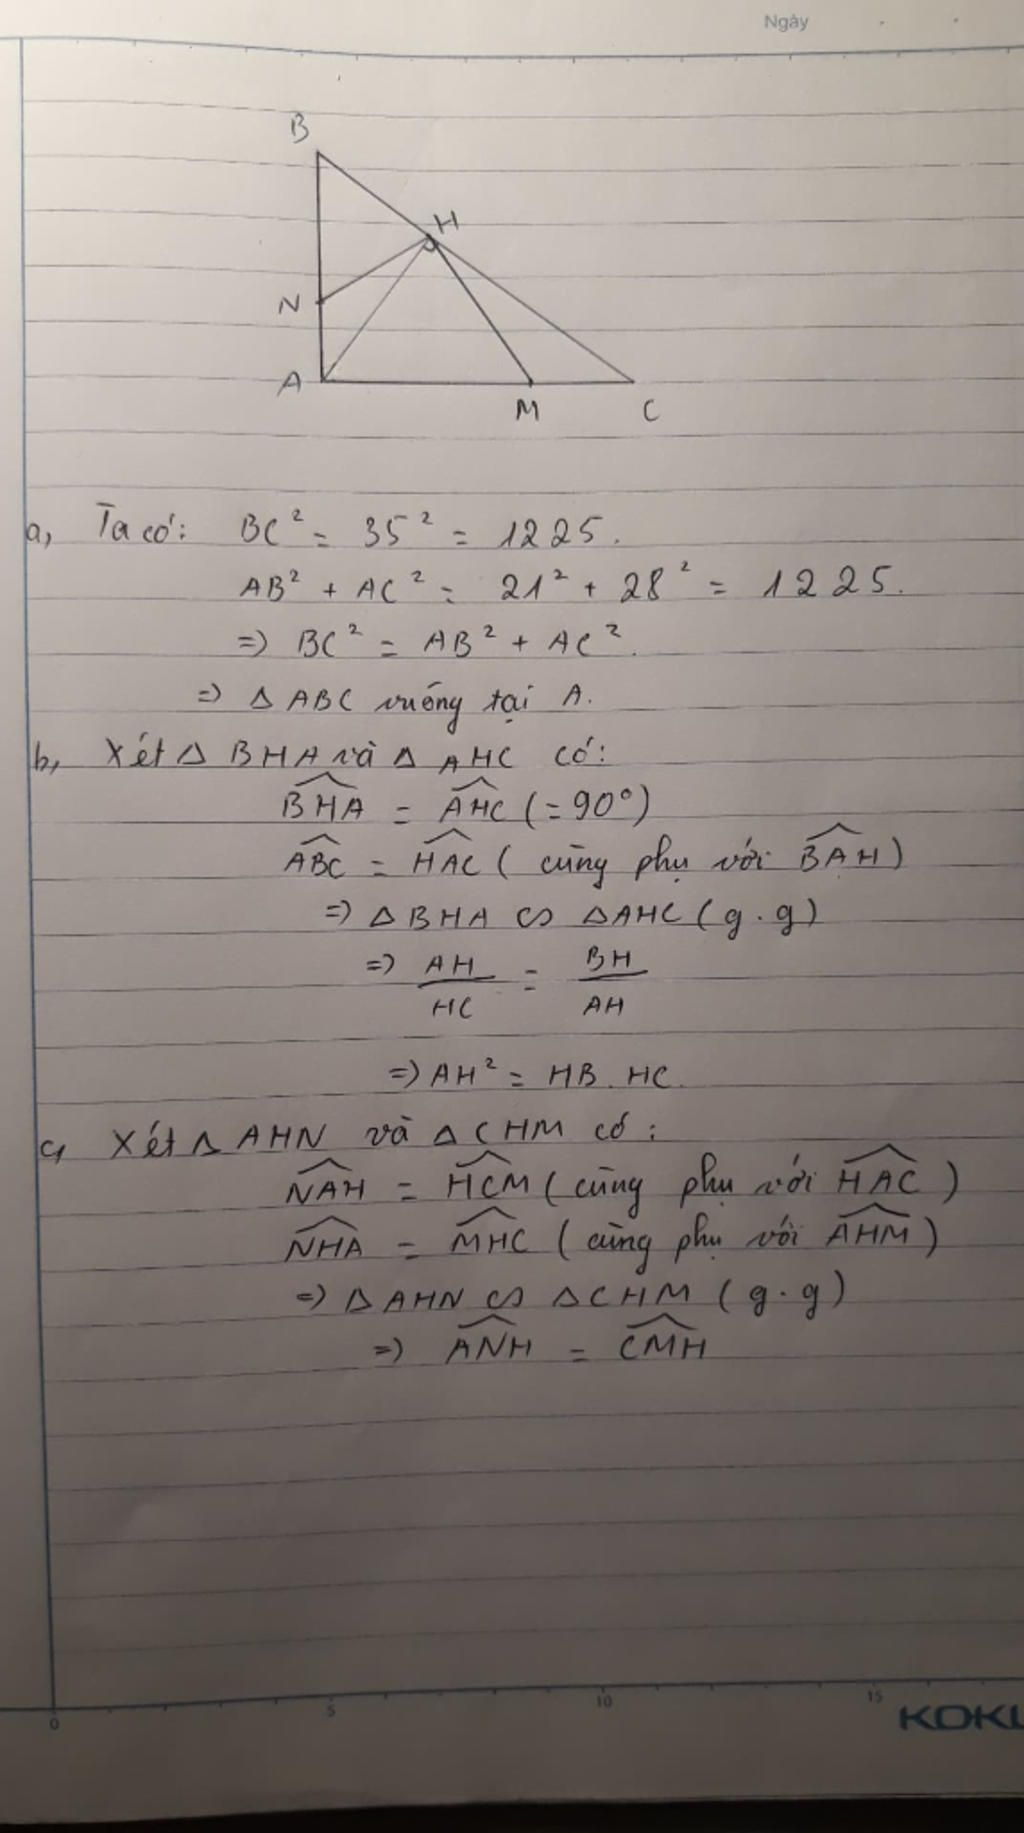 Ngày
B
H
N
A
M
C
a, Ta có: BC² = 35² = 1225.
AB² + AC² = 21² + 28² = 1225.
=> BC² = AB² + AC².
=> Δ ABC vuông tại A.
b, Xét Δ BHA và Δ AHC có:
\widehat{BHA} = \widehat{AHC} (= 90°)
\widehat{ABC} = \widehat{HAC} (cùng phụ với \widehat{BAH})
=> Δ BHA ∽ Δ AHC (g.g)
=> AH/HC = BH/AH
=> AH² = HB. HC.
c, Xét Δ AHN và Δ CHM có:
\widehat{NAH} = \widehat{HCM} (cùng phụ với \widehat{HAC})
\widehat{NHA} = \widehat{MHC} (cùng phụ với \widehat{AHM})
=> Δ AHN ∽ Δ CHM (g.g)
=> \widehat{ANH} = \widehat{CMH}
0 5 10 15
KOKU